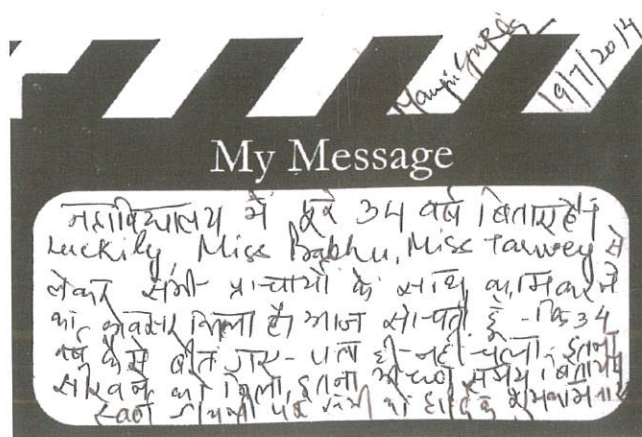 19/7/2014
My Message
महाविद्यालय में पूरे 34 वर्ष बिताए हैं।
Luckily, Miss Prabhu, Miss Tarvey से
लेकर सभी प्राचार्यों के साथ काम करने
का अवसर मिला है। आज सोचती हूँ - कि 34
वर्ष कैसे बीत गए - पता ही नहीं चला। इतना
सीखने को मिला, इतना अच्छा समय बिताया
पर सभी को हार्दिक शुभकामनाएं